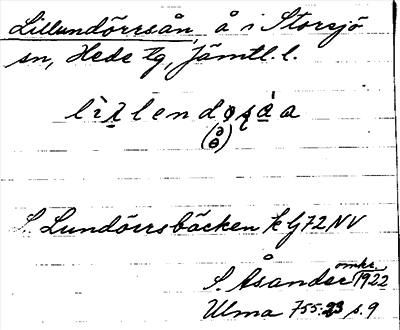 Lillundörrsån, å i Storsjö
sn, Hede tg, Jämtl. l.
S. Lundörrsbäcken k G72NV
S. Åsander omkr. 1922
Ulma 755:23 s. 9